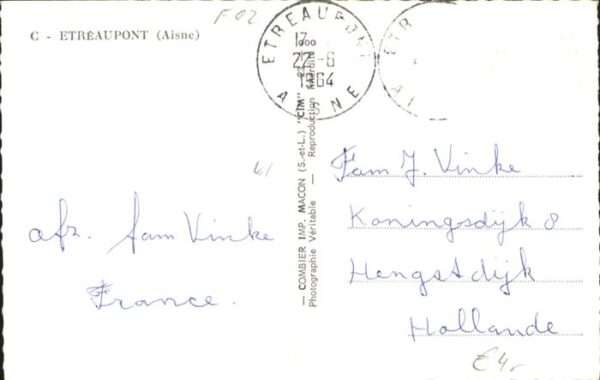 F 02
C - ETRÉAUPONT (Aisne)
ETREAUPONT
17 00
22 - 6
1964
AISNE
ETR
AI
— COMBIER IMP. MACON (S.-et-L.) "CIM" —
Photographie Véritable — Reproduction interdite
afz. fam Vinke
France.
Fam J. Vinke
Koningsdijk 8
Hengstdijk
Hollande
€ 4,-